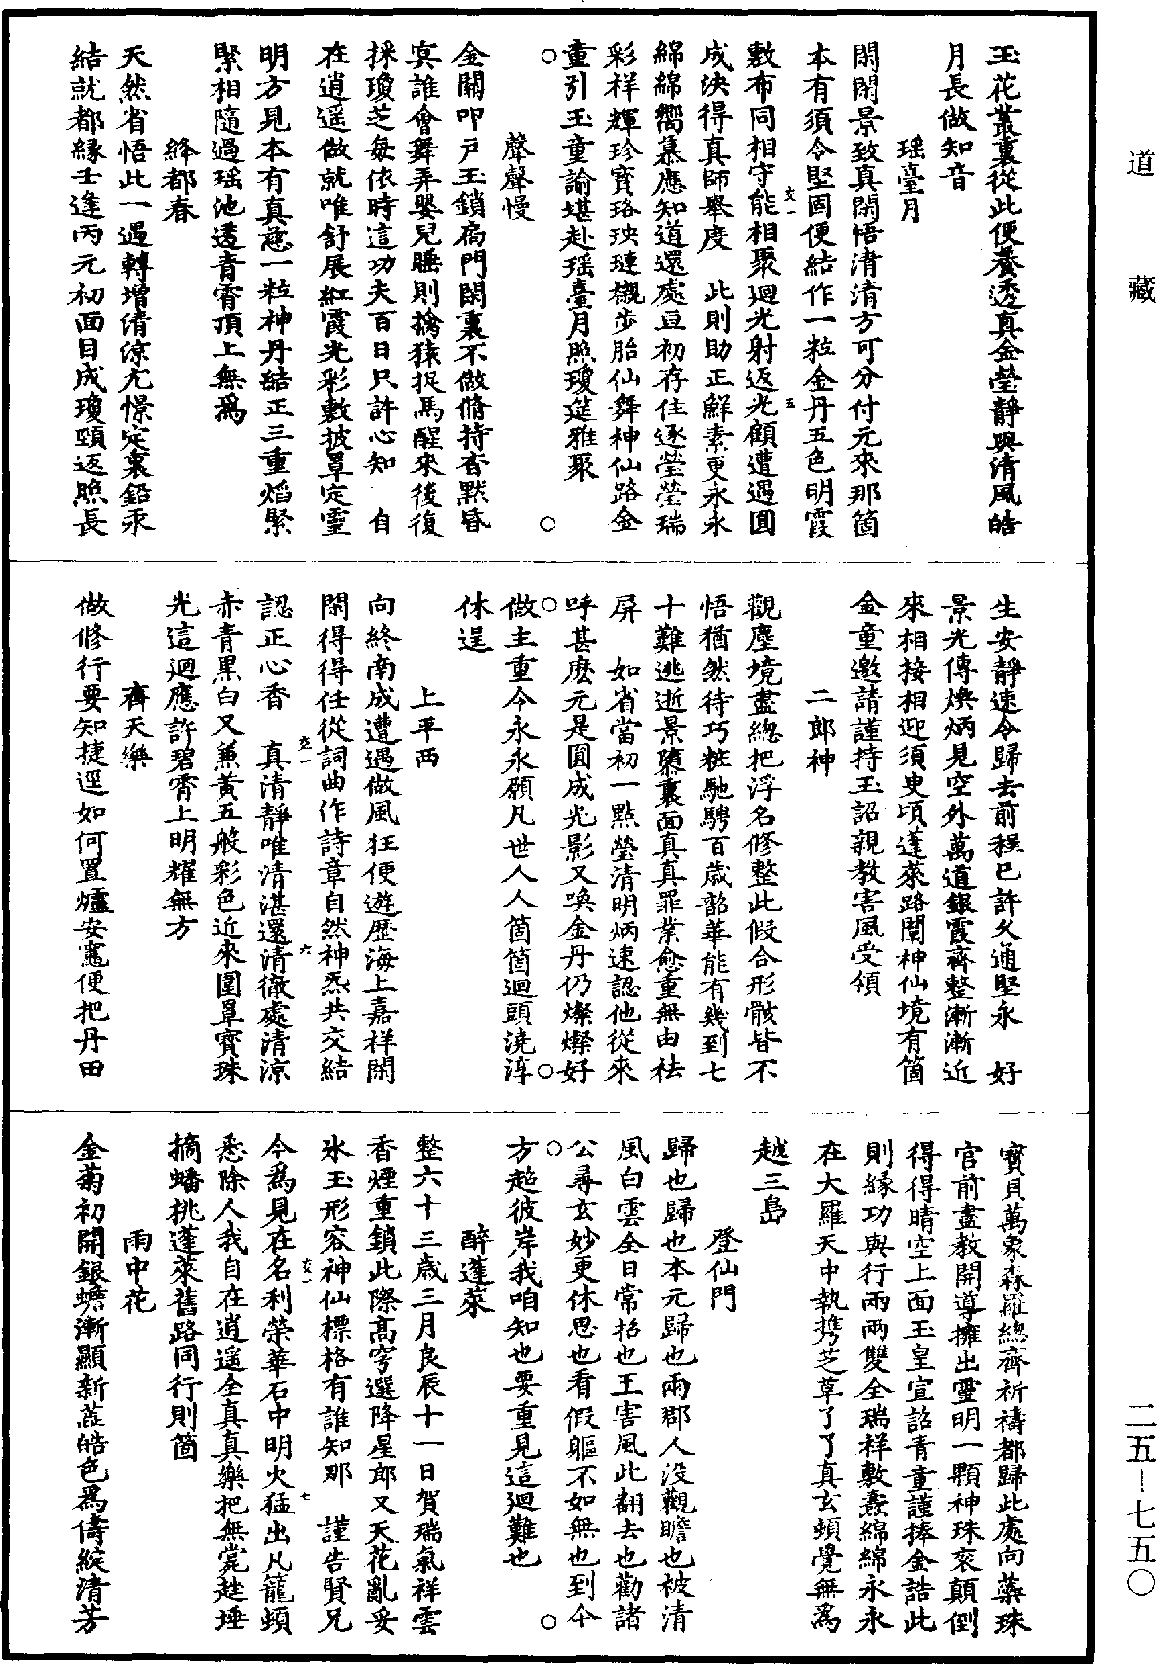 道藏
二五—七五〇
玉花叢裏從此便養透真金瑩靜興清風皓
月長做知音
瑶臺月
閑閑景致真閑悟清清方可分付元來那箇
本有須令堅固便結作一粒金丹五色明霞
敷布同相守能相聚迴光射返光顧遭遇圓
成決得真師舉度　此則助正鮮素更永永
綿綿嚮慕應知道還處亘初存住逐瑩瑩瑞
彩祥輝珍寶珞玦璉襯步胎仙舞神仙路金
童引玉童諭堪赴瑶臺月照瓊筵雅聚
聲聲慢
金關叩戶玉鎖扃門閑裏不做脩持杳默昏
冥誰會舞弄嬰兒睡則擒猿捉馬醒來後復
採瓊芝每依時這功夫百日只許心知　自
在逍遥做就唯舒展紅霞光彩敷披罩定靈
明方見本有真慈一粒神丹結正三重焰緊
緊相隨過瑶池透青霄頂上無爲
絳都春
天然省悟此一遇轉增清涼尤憬定裏鉛汞
結就都緣壬逢丙元初面目成瓊頸返照長
生安靜速令歸去前程已許久通堅永　好
景光傳煥炳見空外萬道銀霞齊整漸漸近
來相接相迎須臾頃蓬萊路闡神仙境有箇
金童邀請謹持玉詔親教害風受領
二郎神
觀塵境盡總把浮名修整此假合形骸皆不
悟猶然待巧粧馳騁百歲韶華能有幾到七
十難逃逝景隳裏面真真罪業愈重無由袪
屏　如省當初一點瑩清明炳速認他從來
呼甚麽元是圓成光影又喚金丹仍燦燦好
做主重令永永願凡世人人箇箇迴頭澆淳
休逞
上平西
向終南成遭遇做風狂便遊歷海上嘉祥閑
閑得得任從詞曲作詩章自然神炁共交結
認正心香　真清靜唯清湛還清徹處清涼
赤青黑白又兼黃五般彩色近來圍罩寶珠
光這迴應許碧霄上明耀無方
齊天樂
做修行要知捷逕如何置爐安竈便把丹田
寶貝萬象森羅總齊祈禱都歸此處向蘂珠
官前盡教開導擁出靈明一顆神珠衮顛倒
得得晴空上面玉皇宣詔青童謹捧金誥此
則緣功與行兩兩雙全瑞祥敷燾綿綿永永
在大羅天中執携芝草了了真玄頓覺無為
越三島
登仙門
歸也歸也本元歸也兩郡人没觀瞻也被清
風白雲全日常招也王害風此翻去也勸諸
公尋玄妙更休思也看假軀不如無也到今
方超彼岸我咱知也要重見這迴難也
醉蓬萊
整六十三歲三月良辰十一日賀瑞氣祥雲
香煙重鎖此際高穹選降星郎又天花亂妥
氷玉形容神仙標格有誰知那　謹告賢兄
今爲見在名利榮華石中明火猛出凡籠頓
悉除人我自在逍遥全真真樂把無甍趓埵
摘蟠桃蓬萊舊路同行則箇
雨中花
金菊初開銀蟾漸顯新蘂皓色爲儔綻清芳